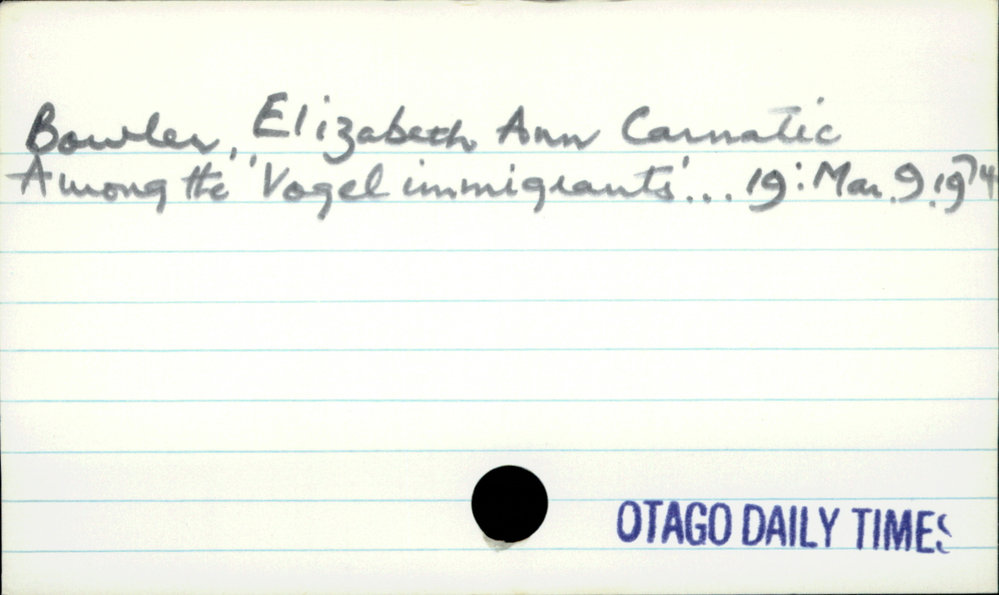 Bowler, Elizabeth Ann Carnatic
Among the 'Vogel immigrants'... 19: Mar. 9. 1974
OTAGO DAILY TIMES